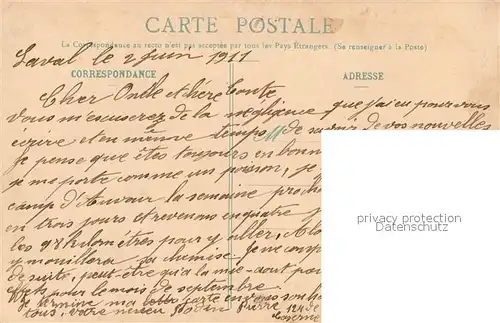 CARTE POSTALE
La Correspondance au recto n'est pas acceptée par tous les Pays Étrangers. (Se renseigner à la Poste)
Laval le 2 Juin 1911
CORRESPONDANCE
ADRESSE
Cher Oncle et chère Tante
vous m'excuserez de la négligence que j'ai eu pour vous
écrire et en même temps de savoir de vos nouvelles
Je pense que êtes toujours en bonn
je me porte comme un poisson, je
camp d'Auvour la semaine proche
en trois jours et revenons en quatre
les 98 kilomètres pour y aller,
y mouillera ma chemise. Je ne comp
de suite, peut être qu'à la mie-août
pour le mois de septembre.
Je termine ma carte en vous
tous, votre neveu Pierre 124 de
privacy protection
Datenschutz